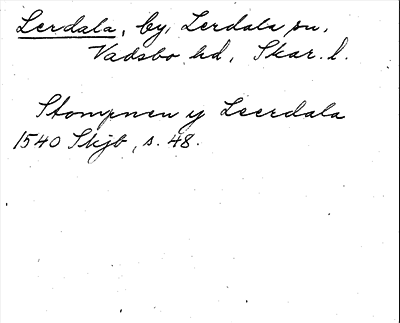 Lerdala, by, Lerdala sn,
Vadsbo hd, Skar. l.
Stompnen y Leerdala
1540 Skjb, s. 48.